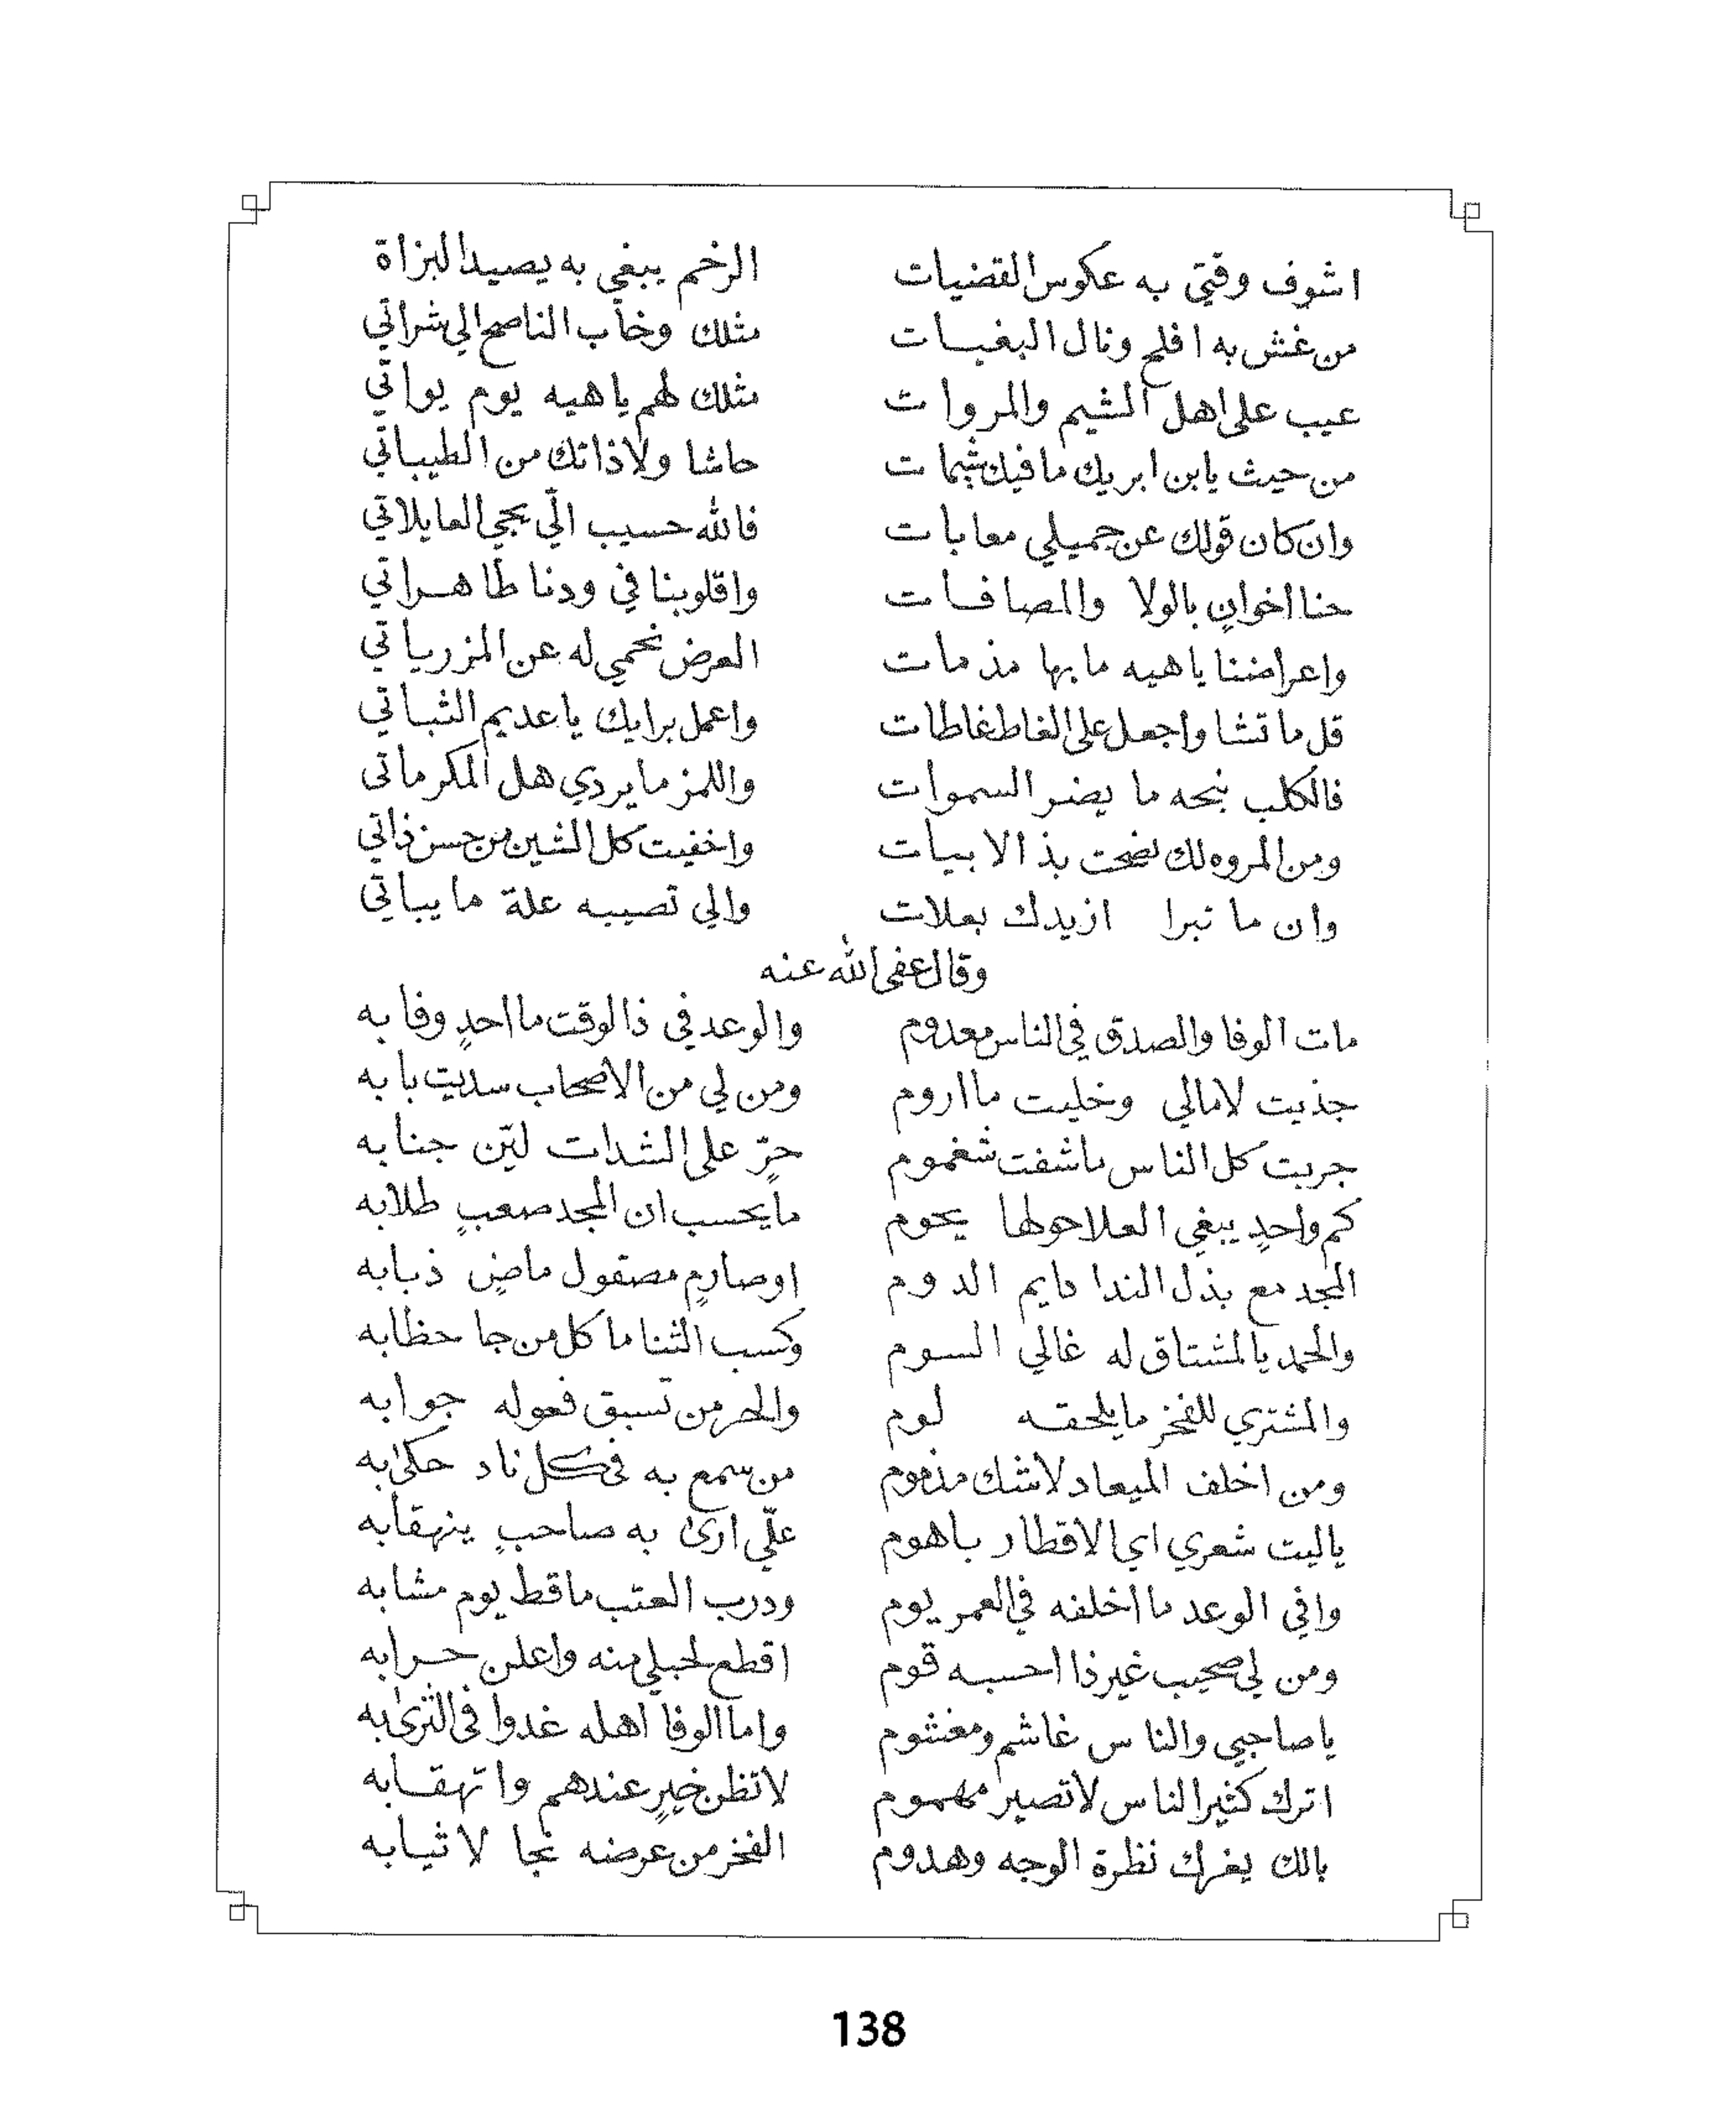 اشوف وقتي به عكوس القضيات الرخم يبغي به يصيد البزاة
من غش به افلح ونال البغيات مثلك وخاب الناصح الي شراتي
عيب على اهل الشيم والمروات مثلك لهم ياهيه يوم يواتي
من حيث يابن ابريك ما فيك شيمات حاشا ولا ذاتك من الطيباتي
وان كان قولك عن جميلي معابات فالله حسيب الّي يجي العايلاتي
حنا اخوانٍ بالولا والمصافات واقلوبنا في ودنا طاهراتي
واعراضنا ياهيه مابها مذمات العرض نحمي له عن المزرياتي
قل ما تشا واجعل على الغاط غاطات واعمل برايك ياعديم الثباتي
فالكلب نبحه ما يضر السموات واللمز ما يردي هل المكرماتى
ومن المروه لك نضحت بذ الابيات واخفيت كل الشين من حسن ذاتي
وان ما تبرا ازيدك بعلات والي تصيبه علة ما يباتي
وقال عفى الله عنه
مات الوفا والصدق في الناس معدوم والوعد في ذا الوقت ما احدٍ وفا به
جذيت لامالي وخليت ما اروم ومن لي من الاصحاب سديت بابه
جربت كل الناس ما شفت شغموم حرٍّ على الشدات ليّن جنابه
كم واحدٍ يبغي العلا حولها يحوم ما يحسب ان المجد صعبٍ طلابه
المجد مع بذل الندا دايم الدوم اوصارمٍ مصقول ماضٍ ذبابه
والحمد يالمشتاق له غالي السوم وكسب الثنا ما كل من جا حظابه
والمشتري للفخر ما يلحقه لوم والحر من تسبق فعوله جوابه
ومن اخلف الميعاد لاشك مذموم من سمع به في كل ناد حكى به
ياليت شعري اي الاقطار باهوم علّي ارى به صاحبٍ ينهقابه
وافي الوعد ما اخلفه في العمر يوم ودرب العتب ماقط يوم مشابه
ومن لي صحيب غير ذا احسبه قوم اقطع لحبلي منه واعلن حرابه
ياصاحبي والناس غاشم ومغشوم واما الوفا اهله غدوا في الثرى به
اترك كثير الناس لاتصير مهموم لاتظن خيرٍ عندهم واتهقابه
بالك يغرك نظرة الوجه وهدوم الفخر من عرضه نجا لا ثيابه
138